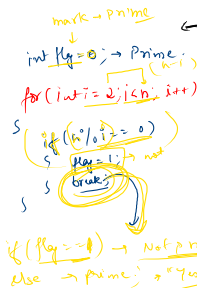 mark → prime
int flg = 0; → Prime.
(n-1)
for(int i = 2; i<n; i++)
{
{ if(n%i == 0)
{ flag = 1; → not
break;
}
}
if(flag == 1) → Not pr
else → prime; → "Yes